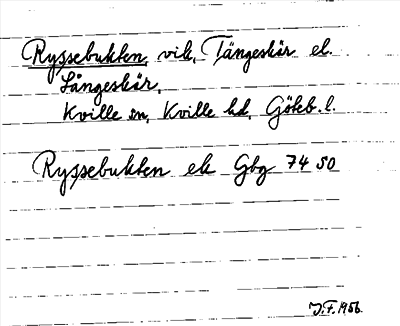 Ryssebukten, vik, Tångeskär el.
Långeskär,
Kville sn, Kville hd, Göteb. l.
Ryssebukten ek Gbg 74 SO
J.F. 1956